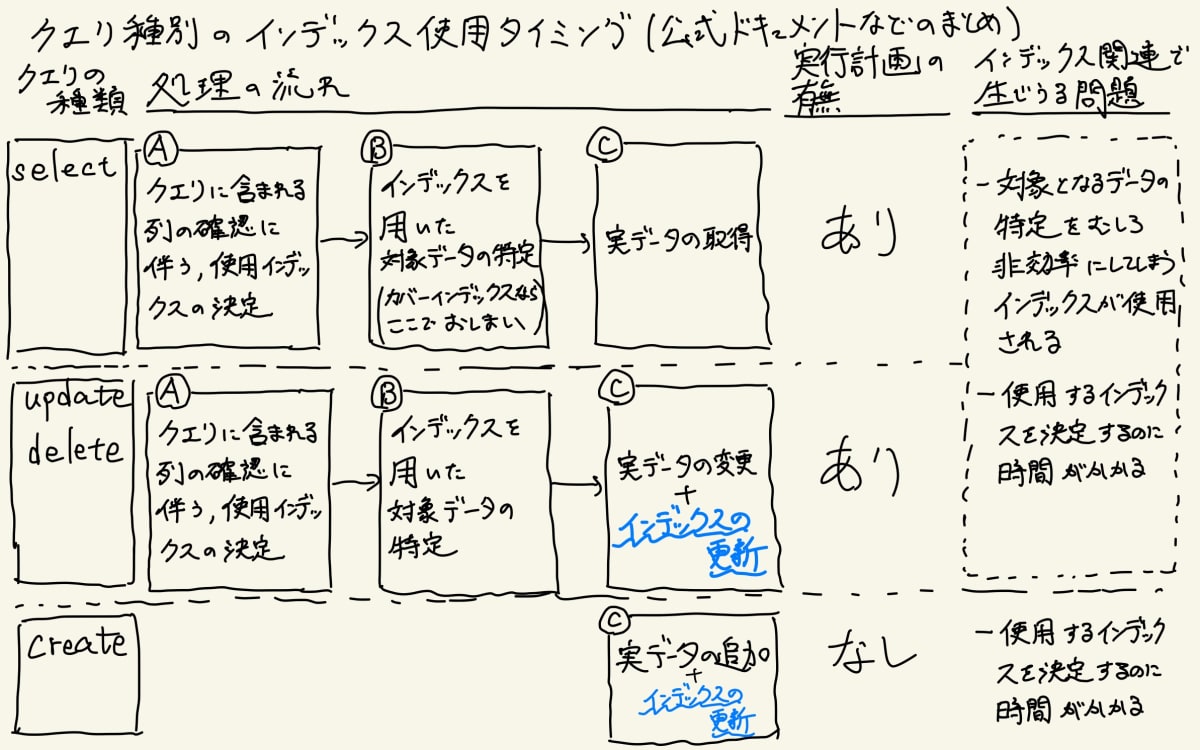 クエリ種別のインデックス使用タイミング(公式ドキュメントなどのまとめ)
クエリの
種類
処理の流れ
実行計画の
有無
インデックス関連で
生じうる問題
select
A
クエリに含まれる
列の確認に
伴う,使用インデッ
クスの決定
B
インデックスを
用いた
対象データの特定
(カバーインデックスなら
ここでおしまい)
C
実データの取得
あり
- 対象となるデータの
特定をむしろ
非効率にしてしまう
インデックスが使用
される
- 使用するインデック
スを決定するのに
時間がかかる
update
delete
A
クエリに含まれる
列の確認に
伴う,使用インデッ
クスの決定
B
インデックスを
用いた
対象データの
特定
C
実データの変更
+
インデックスの
更新
あり
create
C
実データの追加
+
インデックスの
更新
なし
- 使用するインデック
スを決定するのに
時間がかかる